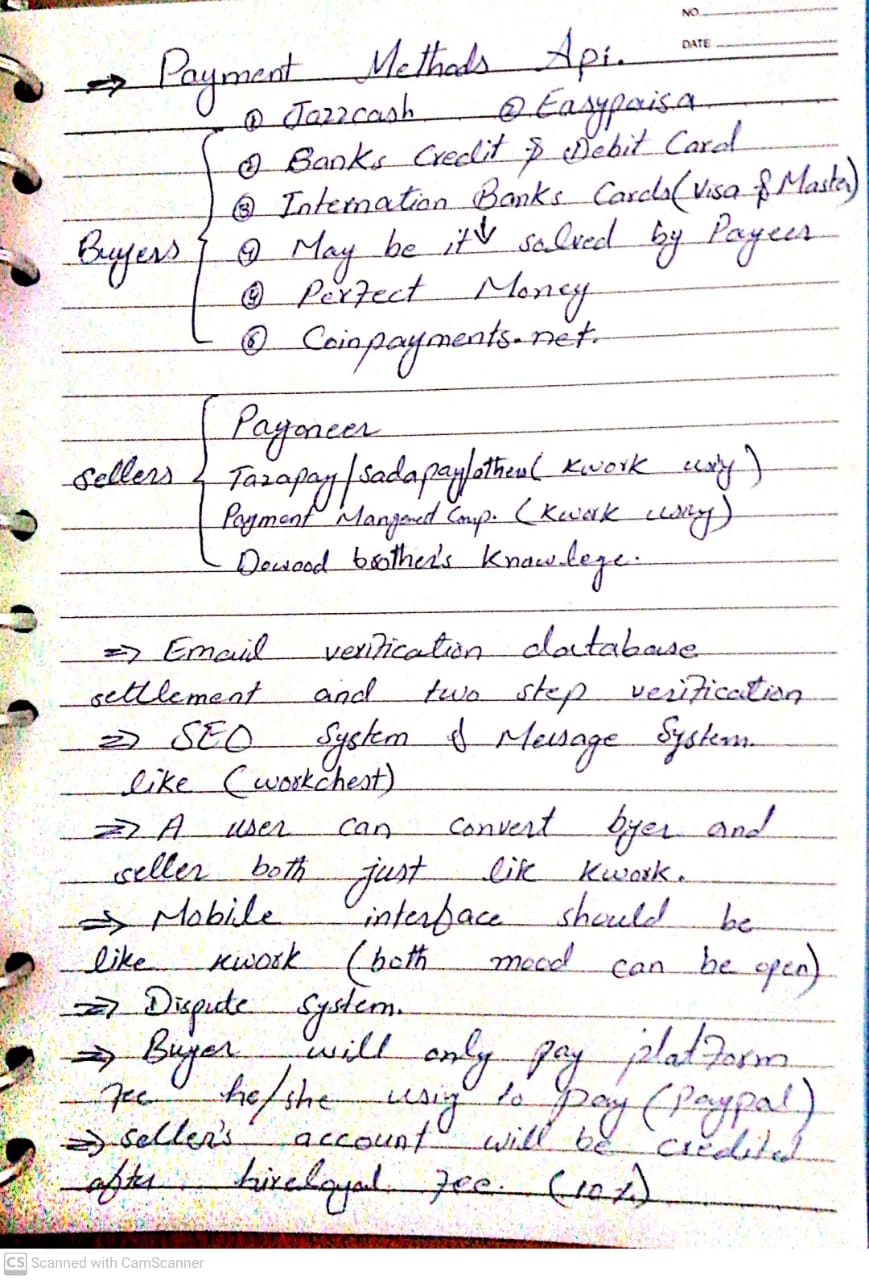 NO.
DATE
⇒ Payment Methods Api.
① Jazzcash ② Easypaisa
② Banks Credit & Debit Card
③ Internation Banks Cards (Visa & Master)
Buyers ④ May be it ↓ solved by Payeer
⑤ Perfect Money
⑥ Coinpayments.net.
Payoneer
sellers Tazapay/sadapay/others ( kwork using )
Payment Comp. (kwork using)
Dawood brother's knowlege.
⇒ Email verification database
settlement and two step verification
⇒ SEO System & Message System.
like (workchest)
⇒ A user can convert byer and
seller both just lik kwork.
⇒ Mobile interface should be
like kwork (both mood can be open)
⇒ Dispute System.
⇒ Buyer will only pay platform
fee he/she using to pay (Paypal)
⇒ Seller's account will be credited
after hireloyal fee. (10%)
CS Scanned with CamScanner